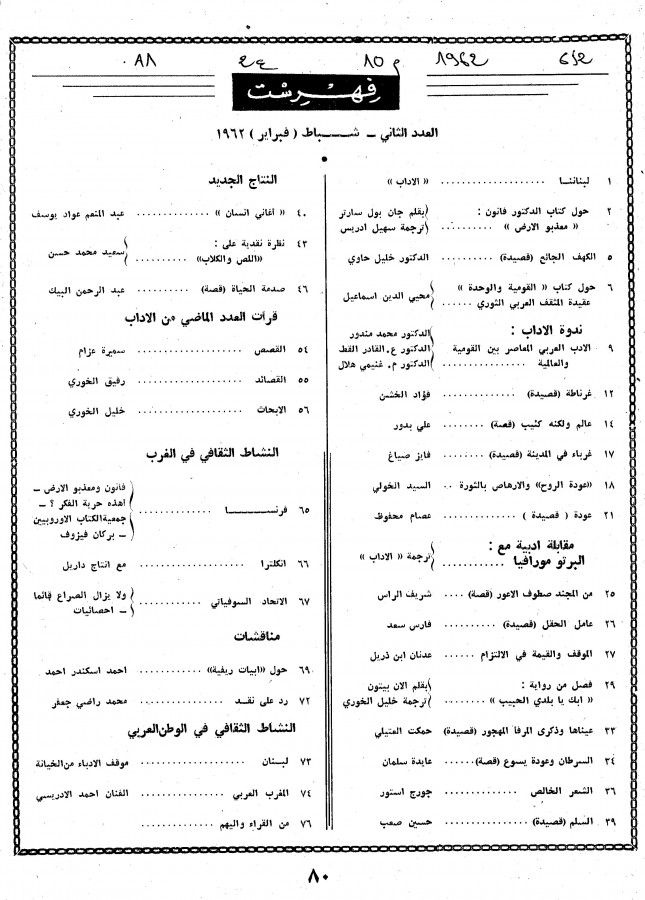 ٠٨٨ ٤٤ م ١٥ 1962 6/2
فهرست
العدد الثاني - شباط ( فبراير ) ١٩٦٢
١ لبناننا .................. « الاداب »
٢ حول كتاب الدكتور فانون : بقلم جان بول سارتر
« معذبو الارض » .......... ترجمة سهيل ادريس
٥ الكهف الجائع (قصيدة) .......... الدكتور خليل حاوي
٦ حول كتاب « القومية والوحدة » محيي الدين اسماعيل
عقيدة المثقف العربي الثوري ......
ندوة الاداب :
الدكتور محمد مندور
٩ الادب العربي المعاصر بين القومية الدكتور ع. القادر القط
والعالمية ................ الدكتور م. غنيمي هلال
١٢ غرناطة (قصيدة) .............. فؤاد الخشن
١٤ عالم ولكنه كئيب (قصة) ........ علي بدور
١٧ غرباء في المدينة (قصيدة) ........ فايز صياغ
١٨ «عودة الروح» والارهاص بالثورة .. السيد الخولي
٢١ عودة ( قصيدة ) .............. عصام محفوظ
مقابلة ادبية مع :
البرتو مورافيا ............ ترجمة « الاداب »
٢٥ من المجند صطوف الاعور (قصة) .... شريف الراس
٢٦ عامل الحقل (قصيدة) .......... فارس سعد
٢٧ الموقف والقيمة في الالتزام ...... عدنان ابن ذريل
٢٩ فصل من رواية : بقلم الان بيتون
« ابك يا بلدي الحبيب » ........ ترجمة خليل الخوري
٣٣ عيناها وذكرى المرفأ المهجور (قصيدة) حكمت العتيلي
٣٤ السرطان وعودة يسوع (قصة) ..... عايدة سلمان
٣٦ الشعر الخالص ................ جورج استور
٣٩ السلم (قصيدة) ................ حسين صعب
النتاج الجديد
٤٠ « اغاني انسان » .............. عبد المنعم عواد يوسف
٤٣ نظرة نقدية على : سعيد محمد حسن
«اللص والكلاب» ..........
٤٦ صدمة الحياة (قصة) .......... عبد الرحمن البيك
قرات العدد الماضي من الاداب
٥٤ القصص .................... سميرة عزام
٥٥ القصائد .................... رفيق الخوري
٥٦ الابحاث .................... خليل الخوري
النشاط الثقافي في الغرب
فانون ومعذبو الارض -
٦٥ فرنسا .............. اهذه حرية الفكر ؟ -
جمعية الكتاب الاوروبيين
- بركان فيزوف
٦٦ انكلترا .................. مع انتاج داريل
٦٧ الاتحاد السوفياتي ............ ولا يزال الصراع قائما
- احصائيات
مناقشات
٦٩ حول «ابيات ريفية» .......... احمد اسكندر احمد
٧٢ رد على نقد ................ محمد راضي جعفر
النشاط الثقافي في الوطن العربي
٧٣ لبنان .................... موقف الادباء من الخيانة
٧٤ المغرب العربي .............. الفنان احمد الادريسي
٧٦ من القراء واليهم ..............
٨٠